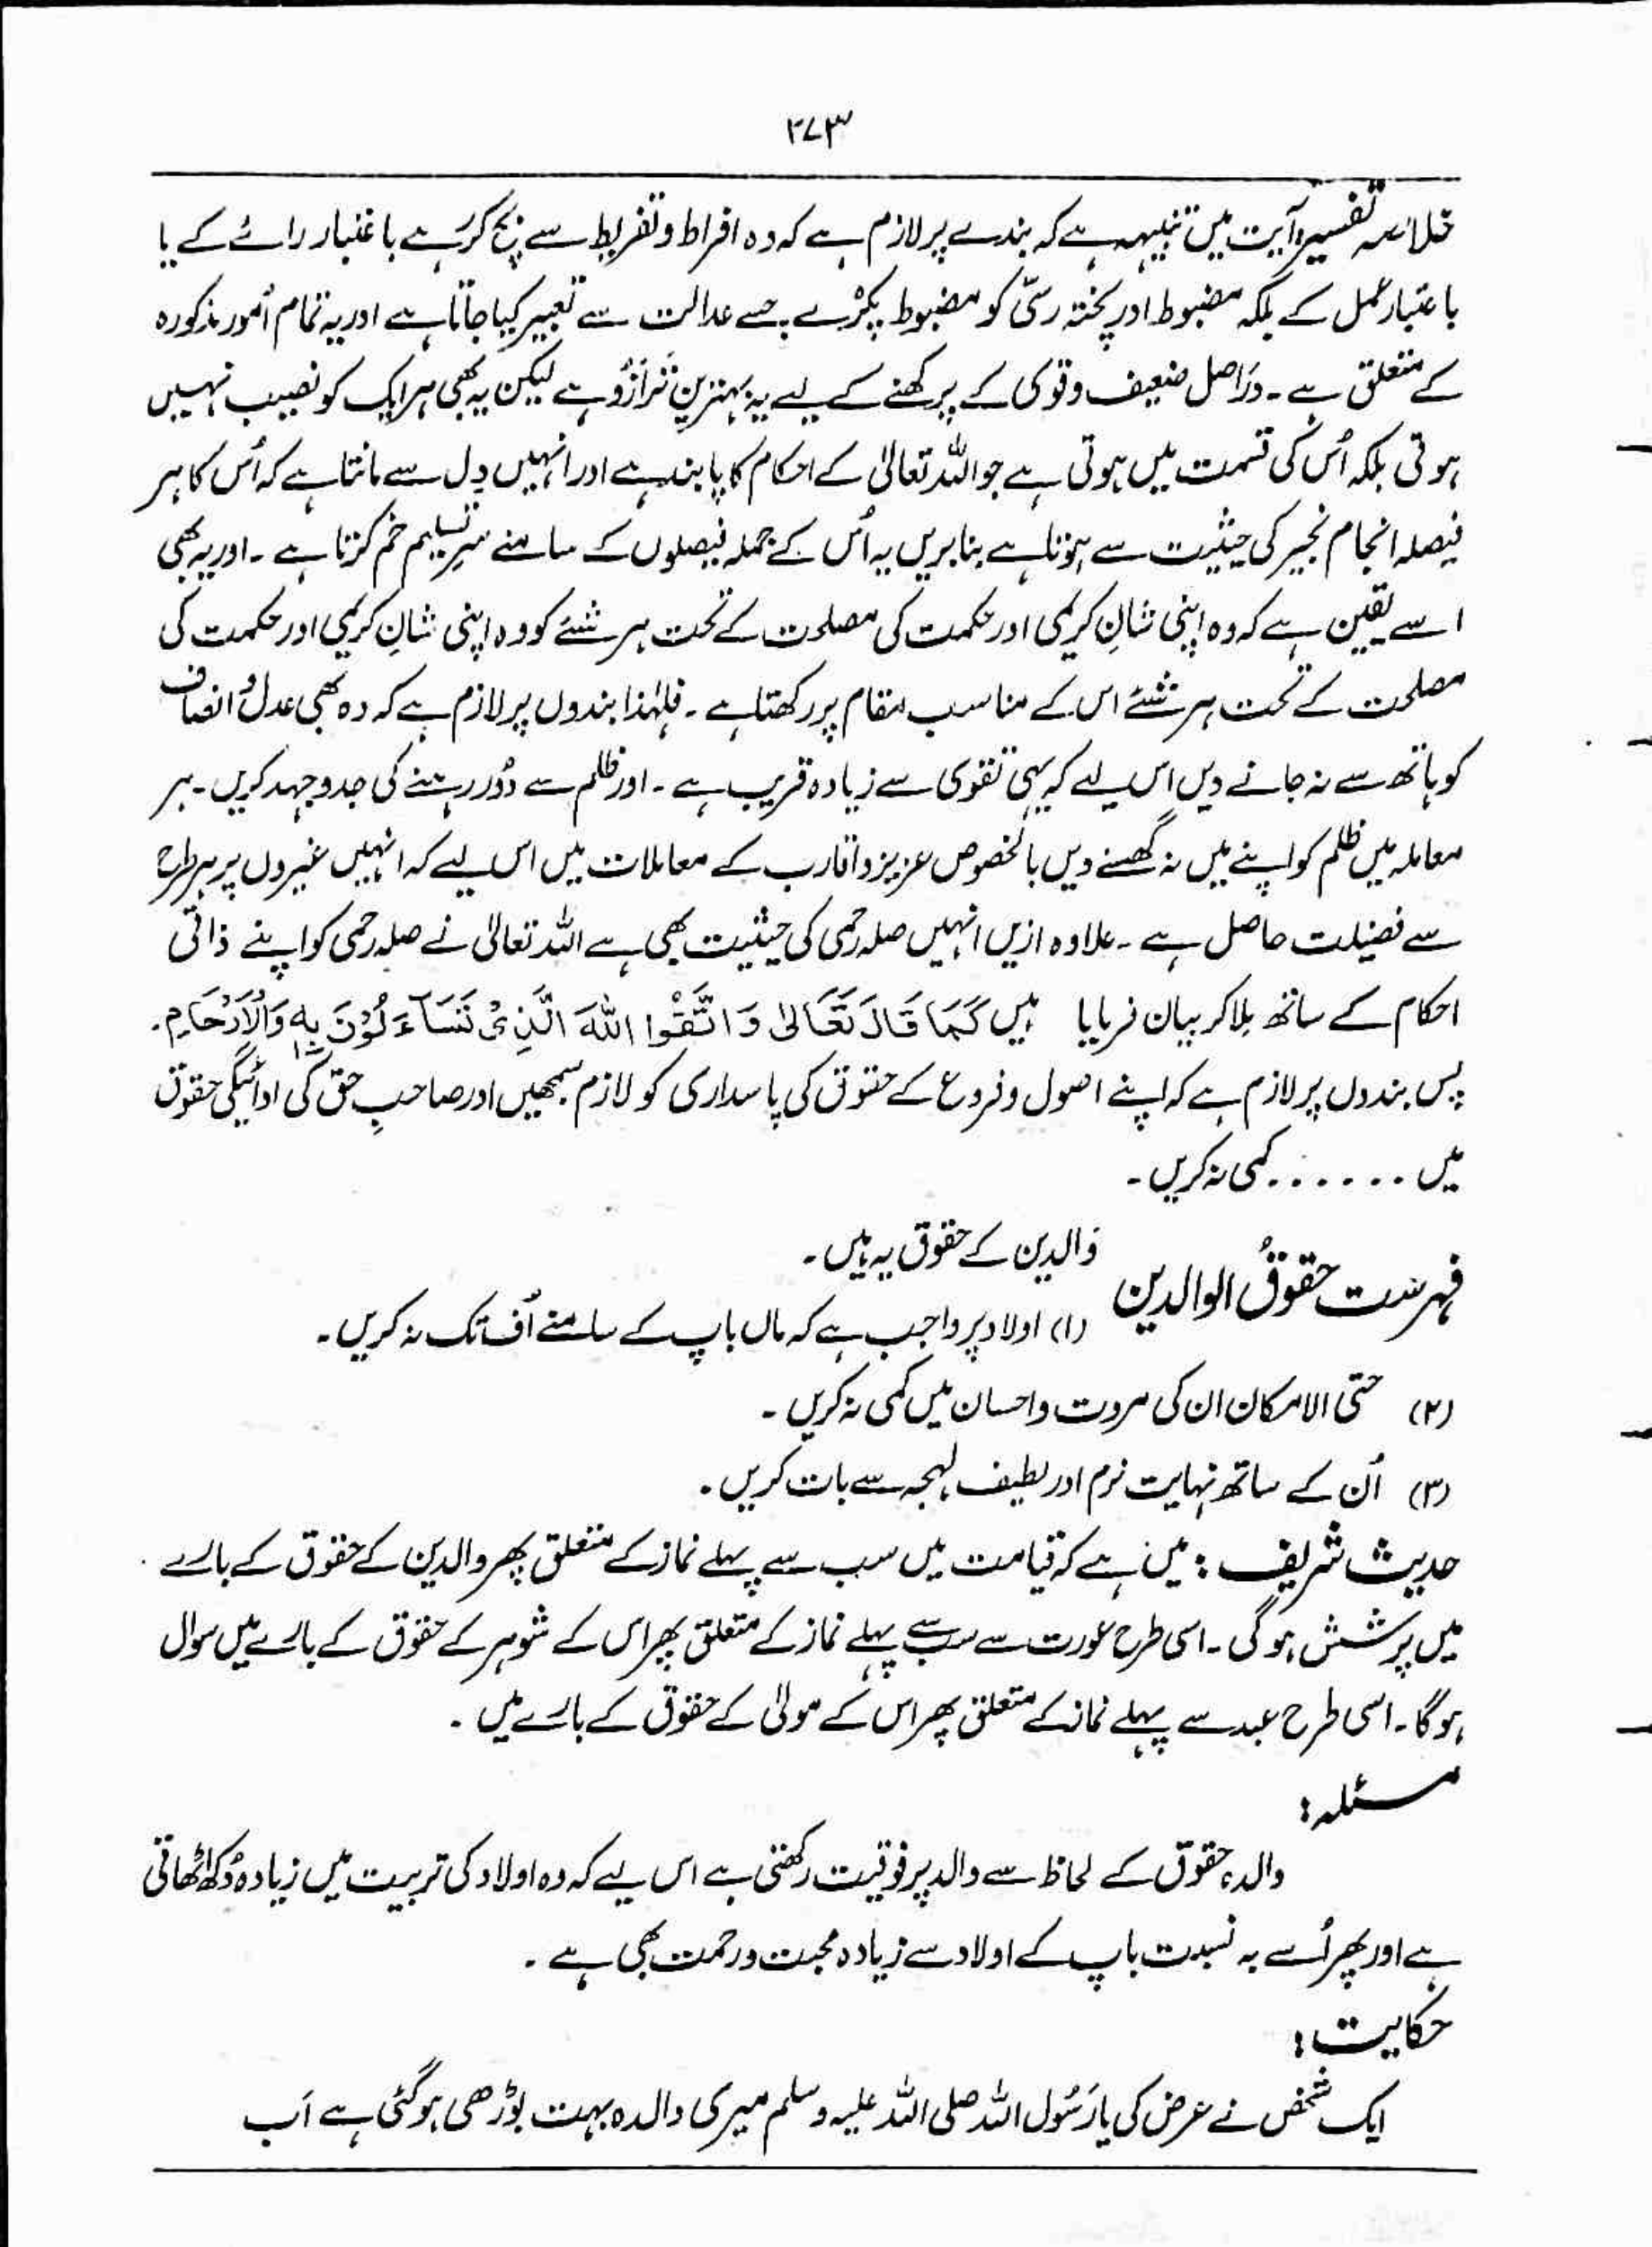 ۲۷۳
خلاصہ تفسیر آیت میں تنبیہہ ہے کہ بندے پر لازم ہے کہ وہ افراط و تفریط سے بچ کر رہے باعتبار رائے کے یا
باعتبار عمل کے بلکہ مضبوط اور پختہ رسّی کو مضبوط پکڑے جسے عدالت سے تعبیر کیا جاتا ہے اور یہ تمام اُمور مذکورہ
کے متعلق ہے ۔ دراصل ضعیف و قوی کے پرکھنے کے لیے یہ بہترین ترازُو ہے لیکن یہ بھی ہر ایک کو نصیب نہیں
ہوتی بلکہ اُس کی قسمت میں ہوتی ہے جو اللہ تعالیٰ کے احکام کا پابند ہے اور انہیں دِل سے مانتا ہے کہ اُس کا ہر
فیصلہ انجام بخیر کی حیثیت سے ہوتا ہے بنا بریں یہ اُس کے جملہ فیصلوں کے سامنے سرِ تسلیم خم کرتا ہے ۔ اور یہ بھی
اسے یقین ہے کہ وہ اپنی شانِ کریمی اور حکمت کی مصلحت کے تحت ہر شئے کو وہ اپنی شانِ کریمی اور حکمت کی
مصلحت کے تحت ہر شئے اس کے مناسب مقام پر رکھتا ہے ۔ فلہٰذا بندوں پر لازم ہے کہ وہ بھی عدل و انصاف
کو ہاتھ سے نہ جانے دیں اس لیے کہ یہی تقوی سے زیادہ قریب ہے ۔ اور ظلم سے دُور رہنے کی جدوجہد کریں ۔ ہر
معاملہ میں ظلم کو اپنے میں نہ گھسنے دیں بالخصوص عزیز و اقارب کے معاملات میں اس لیے کہ انہیں غیروں پر ہر طرح
سے فضیلت حاصل ہے ۔ علاوہ ازیں انہیں صلہ رحمی کی حیثیت بھی ہے اللہ تعالیٰ نے صلہ رحمی کو اپنے ذاتی
احکام کے ساتھ مِلا کر بیان فرمایا ہیں كَمَا قَالَ تَعَالىٰ وَاتَّقُوا اللهَ الَّذِىْ تَسَآءَلُوْنَ بِهٖ وَالْاَرْحَامِ.
پس بندوں پر لازم ہے کہ اپنے اصول و فروع کے حقوق کی پاسداری کو لازم سمجھیں اور صاحبِ حق کی ادائیگی حقوق
میں ...... کمی نہ کریں ۔
فہرست حقوقُ الوالدین والدین کے حقوق یہ ہیں ۔
(۱) اولاد پر واجب ہے کہ ماں باپ کے سامنے اُف تک نہ کریں ۔
(۲) حتی الامکان ان کی مروت و احسان میں کمی نہ کریں ۔
(۳) اُن کے ساتھ نہایت نرم اور لطیف لہجہ سے بات کریں ۔
حدیث شریف : میں ہے کہ قیامت میں سب سے پہلے نماز کے متعلق پھر والدین کے حقوق کے بارے
میں پرسشش ہوگی ۔ اسی طرح عورت سے سب سے پہلے نماز کے متعلق پھر اس کے شوہر کے حقوق کے بارے میں سوال
ہوگا ۔ اسی طرح عبد سے پہلے نماز کے متعلق پھر اس کے مولیٰ کے حقوق کے بارے میں ۔
مسئلہ :
والدہ حقوق کے لحاظ سے والد پر فوقیت رکھتی ہے اس لیے کہ وہ اولاد کی تربیت میں زیادہ دُکھ اُٹھاتی
ہے اور پھر اُسے بہ نسبت باپ کے اولاد سے زیادہ محبت و رحمت بھی ہے ۔
حکایت :
ایک شخص نے عرض کی یا رَسُول اللہ صلی اللہ علیہ وسلم میری والدہ بہت بوڑھی ہوگئی ہے اَب